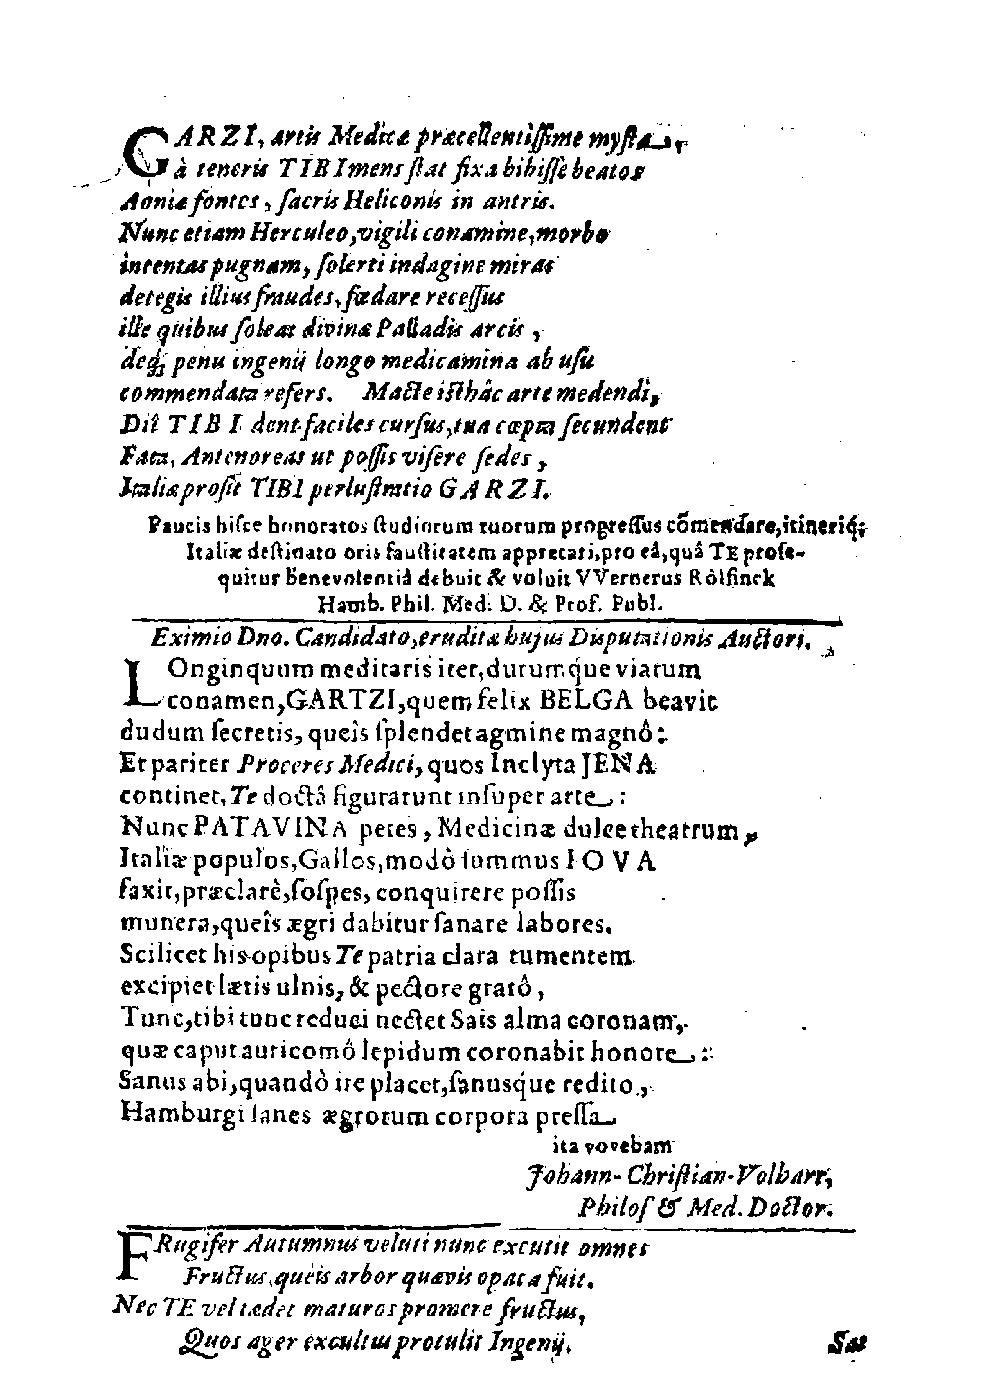 GARZI, artis Medicæ præcellentissime mysta,
à teneris TIBI mens stat fixa bibisse beatos
Aoniæ fontes, sacris Heliconis in antris.
Nunc etiam Herculeo, vigili conamine, morbo
intentas pugnam, solerti indagine miras
detegis illius fraudes, fœdare recessus
ille quibus soleat divinæ Palladis arcis,
deq; penu ingenij longo medicamina ab usu
commendata refers. Macte isthâc arte medendi,
Dii TIBI dent faciles cursus, tua cœpta secundent
Fata, Antenoreas ut possis visere sedes,
Italiæ prosit TIBI perlustratio GARZI.
Paucis hisce honoratos studiorum tuorum progressus cõmendare, itineriq́;
Italiæ destinato oris faustitatem apprecari, pro eâ, quâ TE prose-
quitur benevolentiâ debuit & voluit VVernerus Rolfinck
Hamb. Phil. Med. D. & Prof. Publ.
Eximio Dno. Candidato, eruditæ hujus Disputationis Auctori.
LOnginquum meditaris iter, durumq́ue viarum
conamen, GARTZI, quem felix BELGA beavit
dudum secretis, queîs splendet agmine magnô:
Et pariter Proceres Medici, quos Inclyta JENA
continet, Te doctâ figurarunt insuper arte:
Nunc PATAVINA petes, Medicinæ dulce theatrum,
Italiæ populos, Gallos, modò summus IOVA
faxit, præclarè, sospes, conquirere possis
munera, queîs ægri dabitur sanare labores.
Scilicet his opibus Te patria clara tumentem
excipiet lætis ulnis, & pectore gratô,
Tunc, tibi tunc reduci nectet Sais alma coronam,
quæ caput auricomô lepidum coronabit honore:
Sanus abi, quandò ire placet, sanusq́ue redito,
Hamburgi sanes ægrotum corpora pressa
ita vovebam
Johann-Christian-Volbart,
Philos & Med. Doctor.
FRugifer Autumnus veluti nunc excutit omnes
Fructus, queis arbor quævis opaca fuit.
Nec TE vel tædet maturos promere fructus,
Quos ager excultus protulit Ingenij.
Sæ